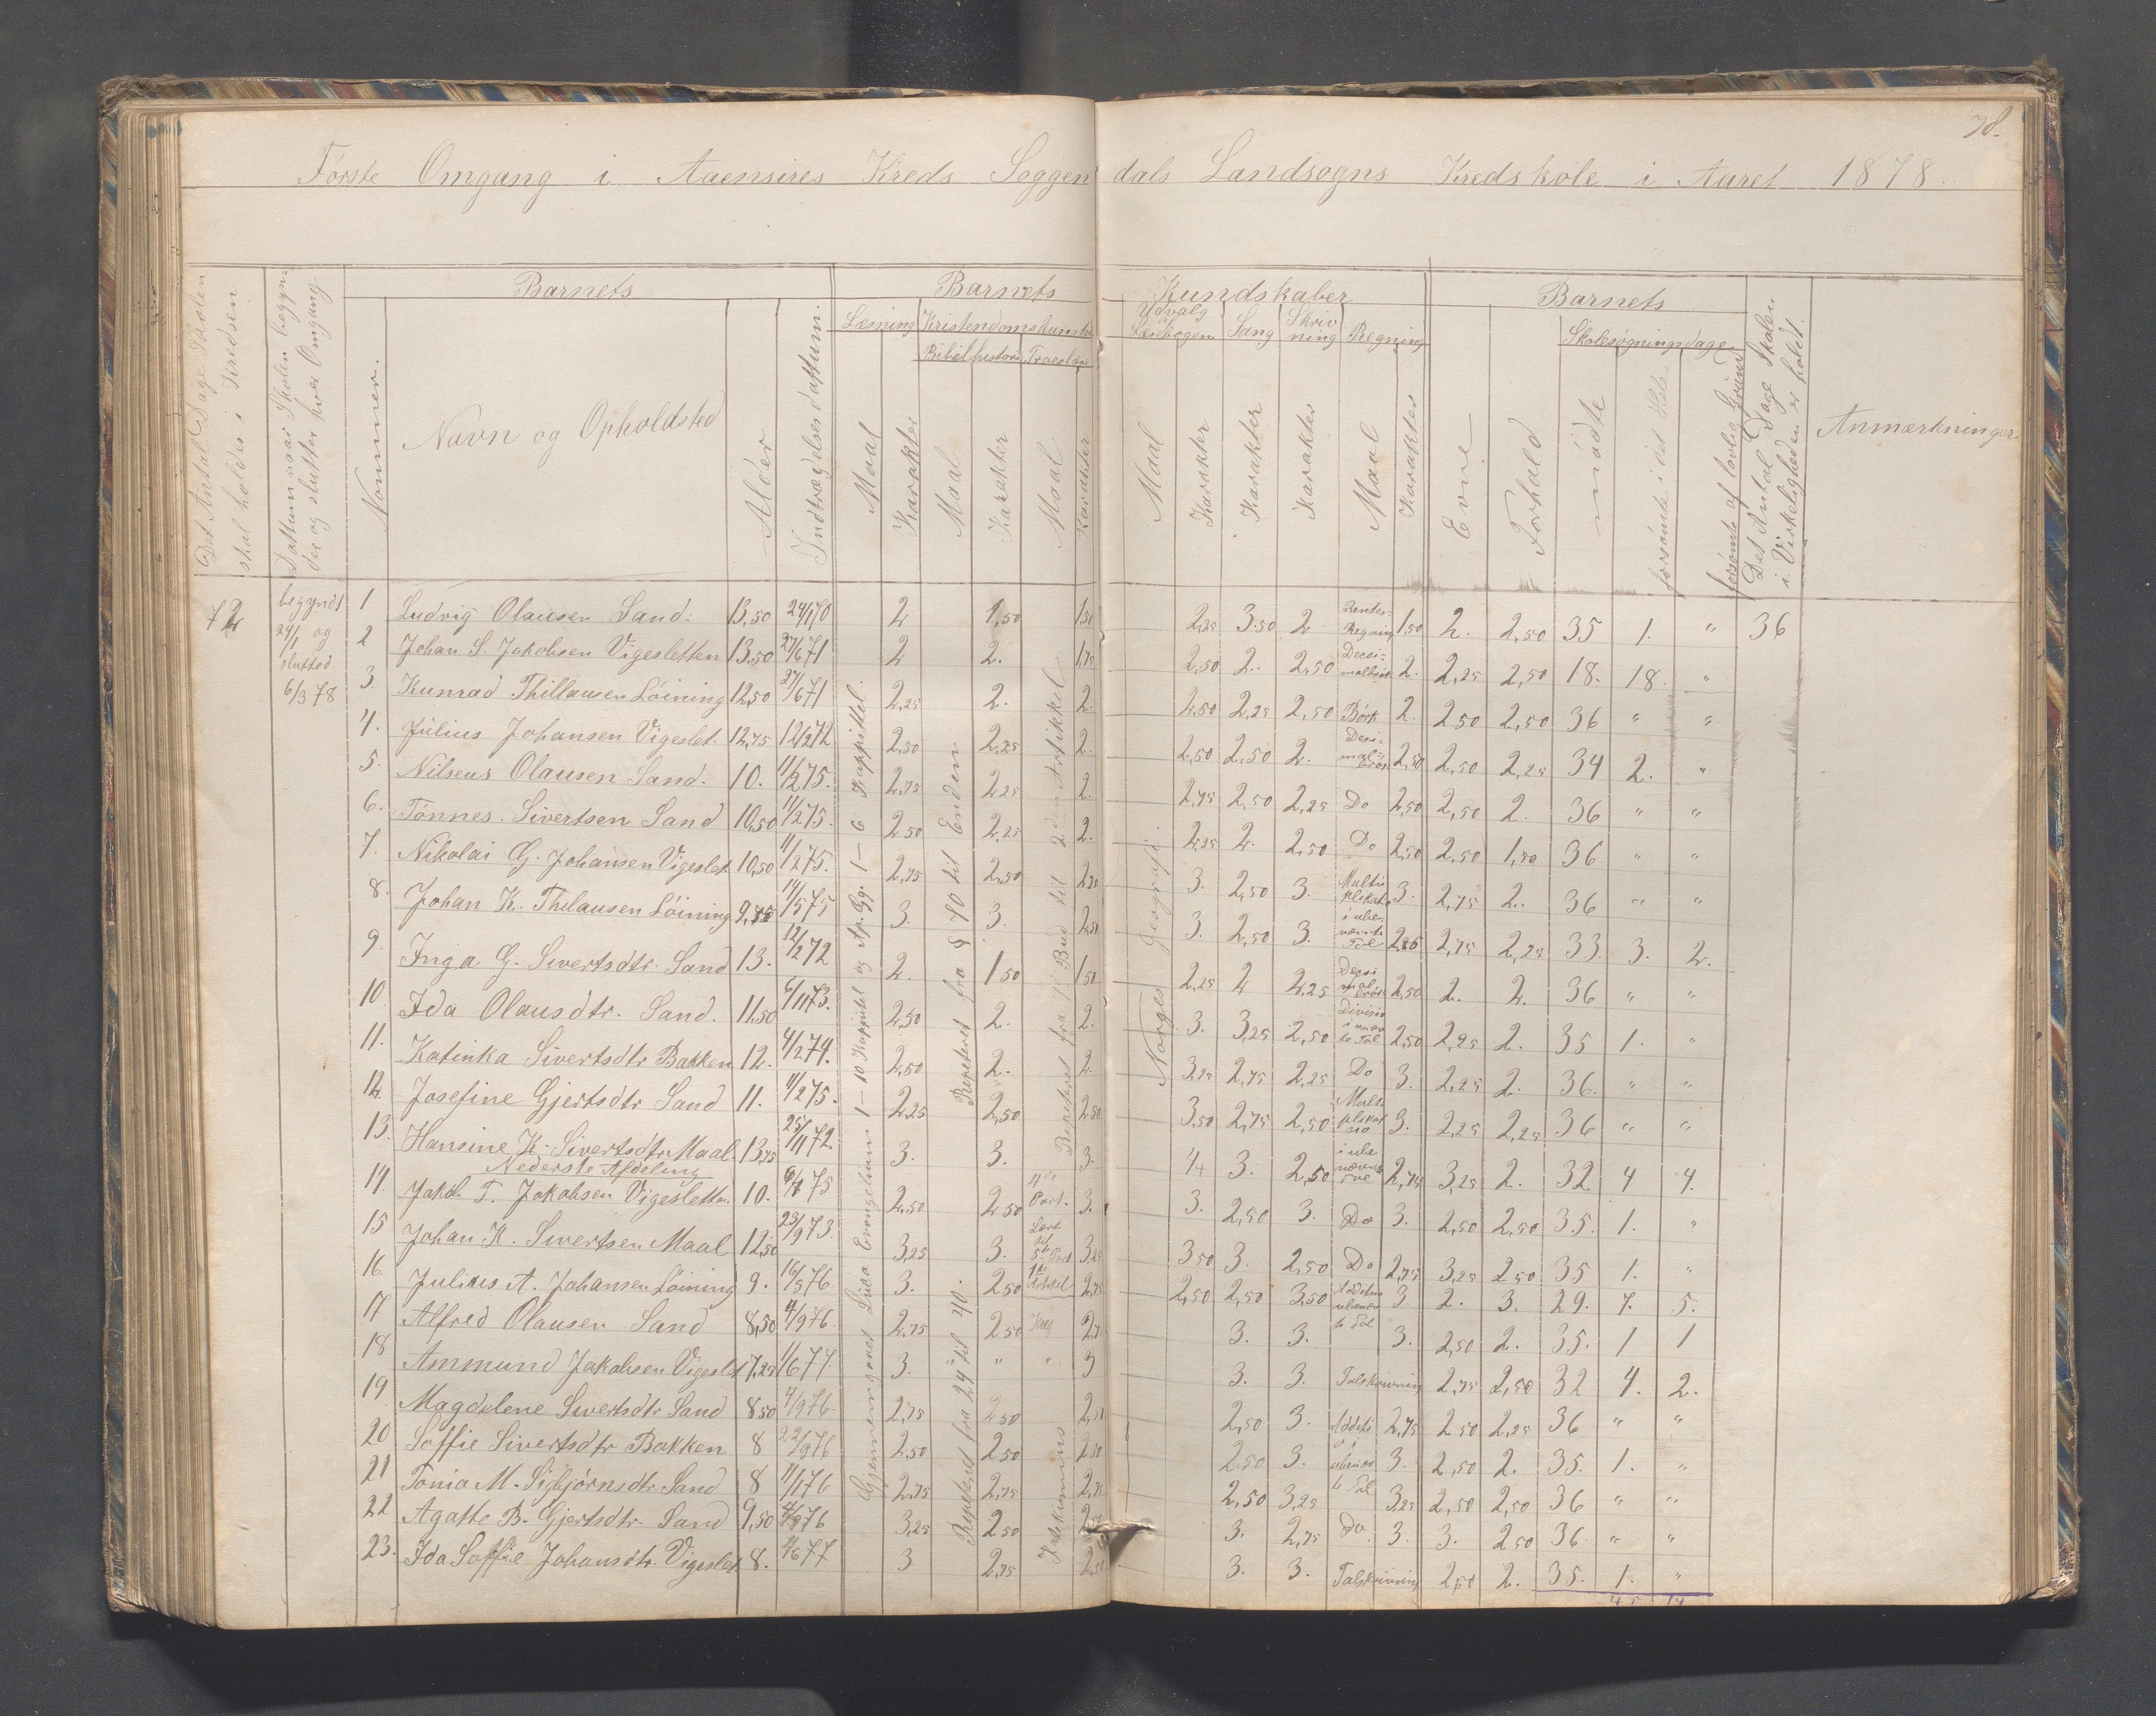 78.
Første Omgang i Aaensires Kreds Soggendals Landsogns Kredskole i Aaret 1878.
Det Antal Dage Skolen skal holdes i Kredsen
Dattum naar Skolen begynder og slutter hver Omgang.
Nommer.
Barnets
Navn og Opholdsted
Alder
Indtrædelsesdattum.
Barnets Kundskaber
Læsning Kristendomskundskab
Bibelhistorie
Maal Karakter Maal Karakter Maal Karakter
Udvalg Læsebogen Sang Skrivning Regning
Maal Karakter Karakter Karakter Maal Karakter
Barnets
Evne Forhald
Skolesøgningsdage
mødte forsømte i det Hele. forsømte af lovlig Grund
Det Antal Dage Skolen i Virkeligheden er holdt.
Anmærkninger
72 begyndt 24/1 og slutted 6/3 78
1 Ludvig Olausen Sand. 13,50 24/1 70 2 1,50 1,50 2,25 3,50 2 Renter-Regning 1,50 2. 2,50 35 1. " 36
2 Johan S. Jakobsen Vigesletten 13,50 27/6 71 2 2. 1,75 2,50 2. 2,50 2. 2,25 2,50 18. 18. "
3. Kunrad Thillausen Löining 12,50 27/6 71 2,25 2. 2. 2,50 2,25 2,50 Brök 2. 2,50 2,50 36 " "
4. Julius Johansen Vigeslet. 12,75 12/2 72 2,50 2,25 2. 2,50 2,50 2. 2,50 2,50 2,25 34 2. "
5. Nilseus Olausen Sand. 10. 11/2 75. 2,75 2,25 2. 2,75 2,50 2,25 Do 2,50 2,50 2. 36 " "
6. Tønnes Sivertsen Sand 10,50 11/2 75. 2,50 2,25 2. 2,25 2. 2,50 Do 2,50 2,50 1,50 36 " "
7. Nikolai G. Johansen Vigeslet. 10,50 11/2 75. 2,75 2,50 2,25 3. 2,50 3. 3. 2,75 2. 36 " "
8. Johan K. Thilausen Löining 9,75 14/5 75 3. 3. 2,50 3. 2,50 3. 2,75 2,25 33. 3. 2.
9. Inga G. Sivertsdtr. Sand 13. 12/2 72 2. 1,50 1,50 2,25 2 2,25 2,50 2. 2. 36 " "
10. Ida Olausdtr. Sand. 11,50 6/11 73. 2,50 2. 2. 3. 3,25 2,50 2,50 2,25 2. 35 1. "
11. Katinka Sivertsdtr Bakken 12. 4/2 74. 2,50 2. 2. 3,25 2,75 2,25 Do 3. 2,25 2. 36. " "
12. Josefine Gjertsdtr Sand 11. 11/2 75. 2,25 2,50 2,50 3,50 2,75 2,50 3. 2,25 2,25 36 " "
13. Hansine K. Sivertsdtr Maal. 13,75 25/11 72. 3. 3. 3. 4 3. 2,50 2,75 3,25 2. 32 4 4.
Nederste Afdeling
14. Jakob T. Jakobsen Vigesletten. 10. 75 2,50 2,50 3. 3. 2,50 3. Do 3. 2,50 2,50 35. 1. "
15 Johan K. Sivertsen Maal 12,50 23/9 73. 3,25 3. 3,25 3,50 3. 2,50 Do 2,75 3,25 2,50 35 1. "
16 Julius A. Johansen Löining 9. 16/5 76 3. 2,50 2,75 2,50 2,50 3,50 3. 2. 3. 29. 7. 5.
17 Alfred Olausen Sand 8,50 4/9 76. 2,75 2,50 3. 3. 3. 2,50 2. 35. 1 1
18 Ammund Jakobsen Vigeslet 7,25 77. 3. " " 3 3. 3. Talskrivning 2,75 2,50 32 4. 2.
19 Magdelene Sivertsdtr Sand 8,50 4/9 76. 2,75 2,50 2,50 3. 2,75 2,50 2,25 36 " "
20 Soffie Sivertsdtr Bakken 8 22/9 76 2,50 2,50 2,50 2,50 3. 3. 2,50 2. 35. 1. "
21 Tonia M. Sigbjörnsdtr. Sand 8 11/1 76 2,75 2,75 2,75 2,50 3,25 3,25 2,50 2,50 36 " "
22 Agatte B. Gjertsdtr. Sand 9,50 4/9 76 3,25 2,50 3. 2,75 Do 3. 3. 2,50 36 " "
23. Ida Soffie Johansdtr. Vigeslet. 8. 4/6 77 3 2,75 2,50 3. 3. Talskrivning 2,50 2. 35. 1. "
Gjennemgaaet Lukas Evangelium 1 – 10 Kappittel og Ap. Gg. 1 – 6 Kappittel.
Repeteret fra § 40 til Enden
Repeteret fra 24 til 40.
Repeteret fra Bud til 2den Artikkel
Katekismus
Norges geografi.